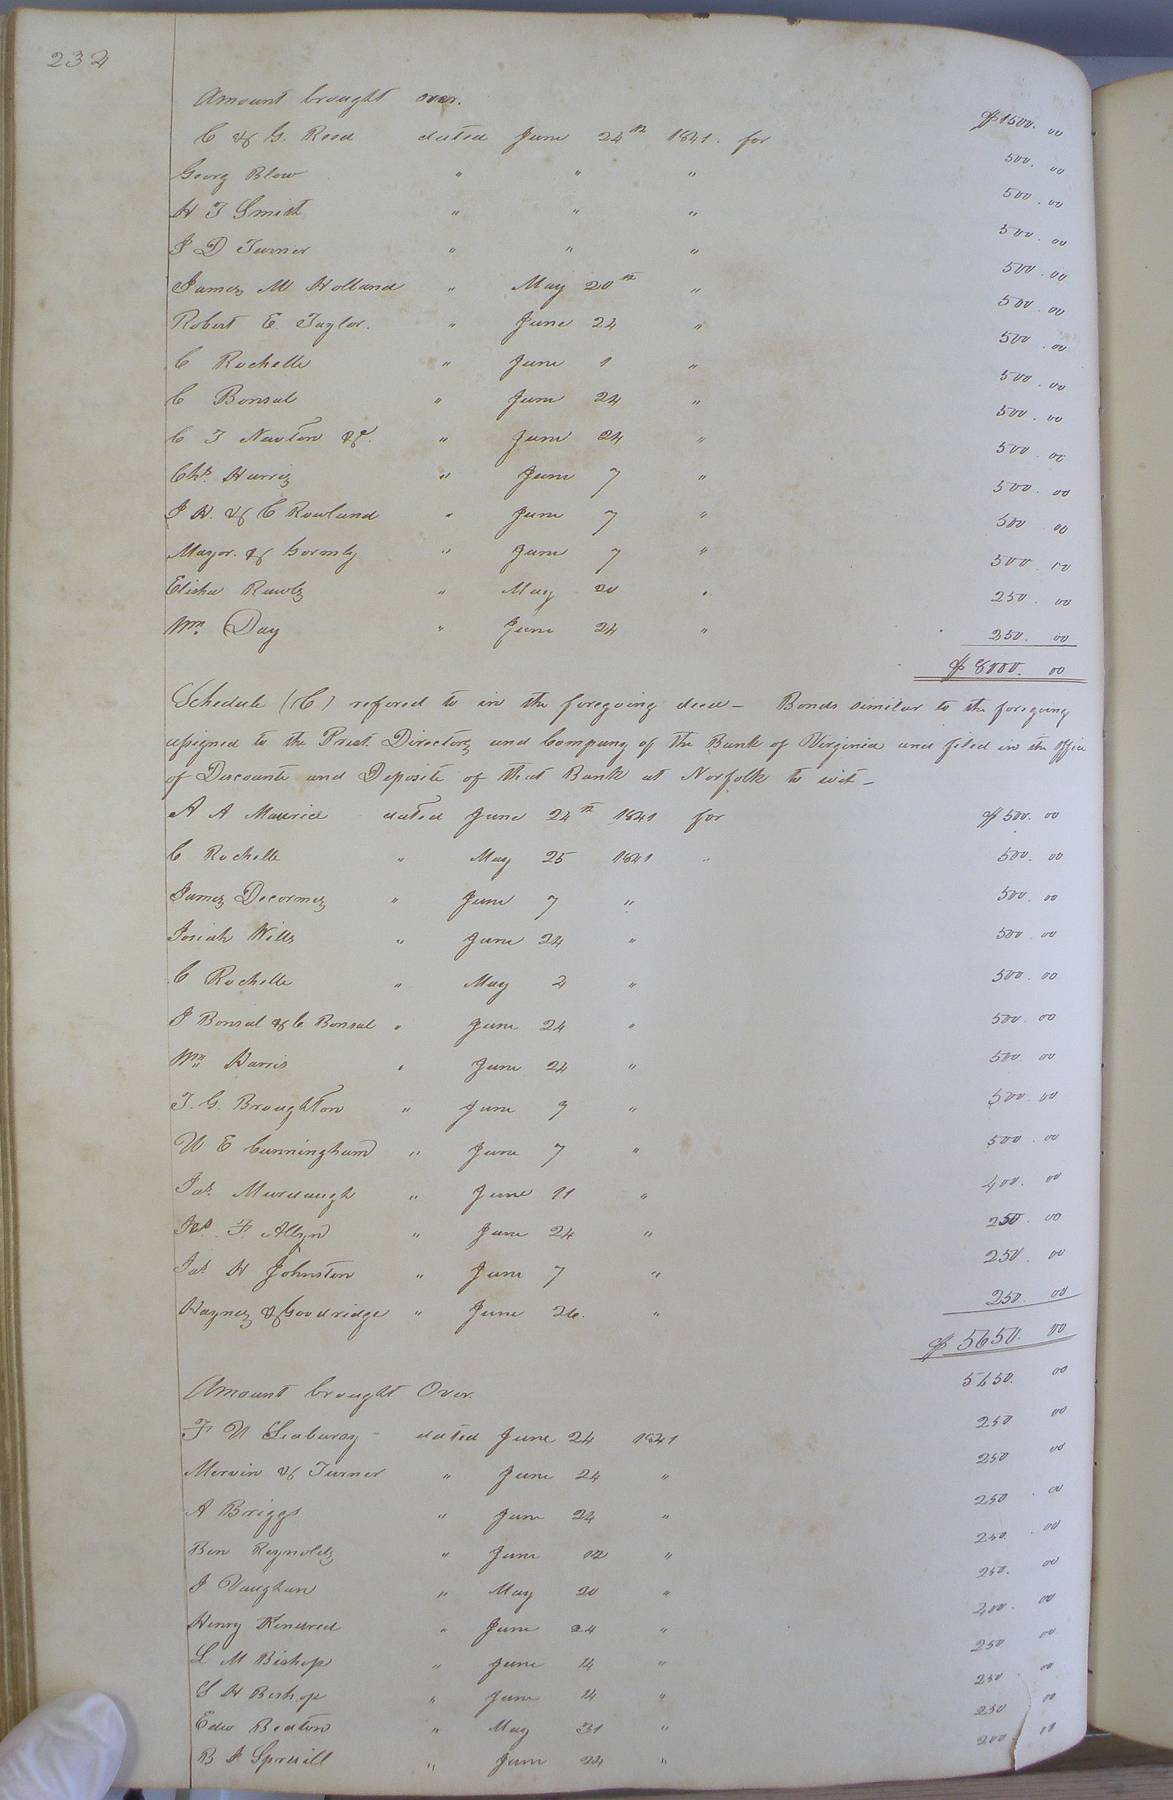 232
Amount brought over. $1500. 00
C & G. Reed dated June 24th 1841. for 500. 00
Georg Blow " " " 500. 00
W T Smith " " " 500. 00
J D Turner " " " 500. 00
James M Holland " May 20th " 500. 00
Robert E. Taylor. " June 24 " 500. 00
C Rochelle " June 1 " 500. 00
C Bonsal " June 24 " 500. 00
C T Newton &c. " June 24 " 500. 00
Chs. Harris " June 7 " 500. 00
J H. & C Rowland " June 7 " 500 00
Mayor. & Gormly " June 7 " 500. 00
Elisha Rawls " May 20 " 250. 00
Wm. Day " June 24 " 250. 00
$ 8000. 00
Schedule (C) refered to in the foregoing deed – Bonds similar to the foregoing
assigned to the Prest. Directors and Company of the Bank of Virginia and filed in the office
of Discounts and Deposite of that Bank at Norfolk to wit –
A A Maurice dated June 24th 1841 for $ 500. 00
C Rochelle " May 25 1841 " 500. 00
James Decormis " June 7 " 500. 00
Josiah Wills " June 24 " 500. 00
C Rochelle " May 2 " 500. 00
J Bonsal & C Bonsal " June 24 " 500. 00
Wm Harris " June 24 " 500. 00
T. G. Broughton " June 7 " 500. 00
W E Cunningham " June 7 " 500. 00
Jas. Murdaugh " June 11 " 400. 00
F Allyn " June 24 " 250. 00
Jas. H Johnston " June 7 " 250. 00
Haynes & Goodridge " June 26. " 250. 00
$ 5650. 00
Amount brought Over. 5650. 00
F W Seabury dated June 24 1841 250 00
Mervin & Turner " June 24 " 250 00
A Briggs " June 24 " 250 . 00
Ben Reynolds " June 12 " 250. 00
J Vaughan " May 20 " 250. 00
Henry Kindred " June 24 " 200. 00
L M Bishop " June 14 " 250 00
S H Bishop " June 14 " 250 00
Edw Beaton " May 31 " 250 00
B J Spruill " June 24 " 200 00